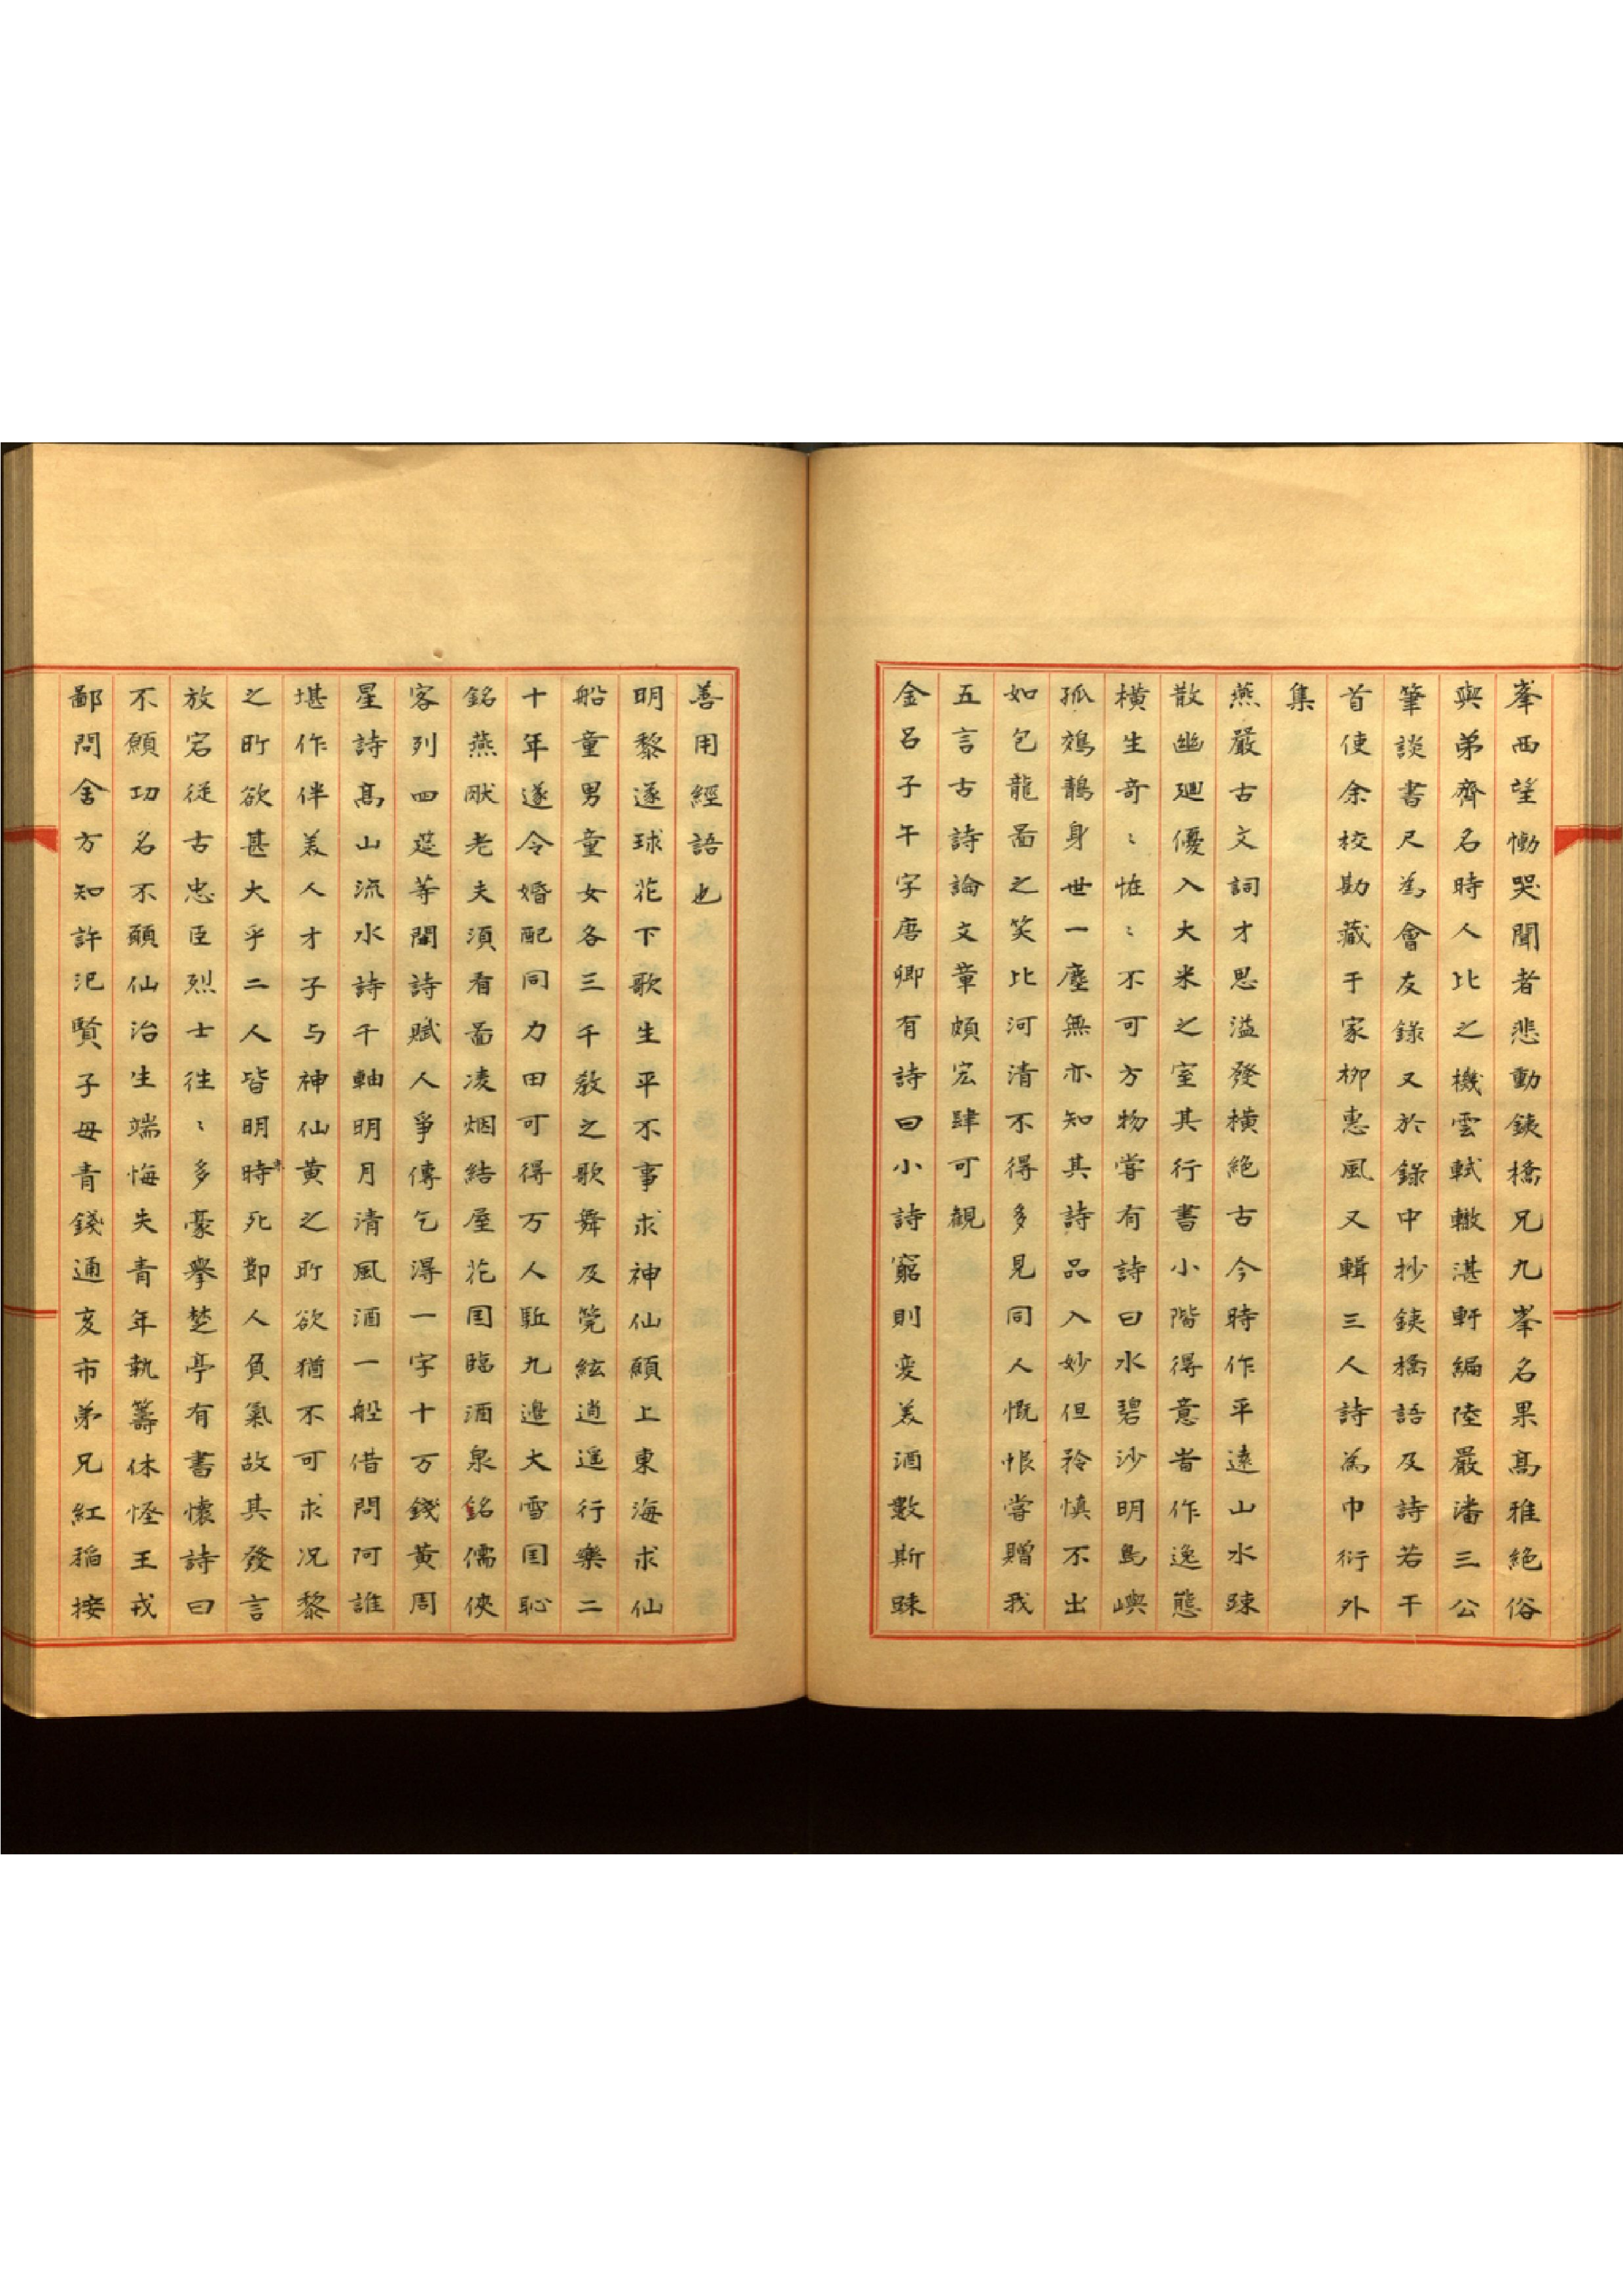 峯西望慟哭聞者悲動鐵橋兄九峯名果髙雅絶俗
與弟齊名時人比之機雲軾轍湛軒編陸嚴潘三公
筆談書尺爲會友錄又於錄中抄鐵橋語及詩若干
首使余校勘藏于家栁惠風又輯三人詩爲巾衍外
集
燕嚴古文詞才思溢發橫絶古今時作平遠山水踈
散幽廻優入大米之室其行書小階得意者作逸態
橫生奇〻恠〻不可方物嘗有詩曰水碧沙明島嶼
孤䴔鶄身世一塵無亦知其詩品入妙但矜慎不出
如包龍啚之笑比河清不得多見同人慨恨嘗贈我
五言古詩論文章頗宏肆可觀
金呂子午字唐卿有詩曰小詩窮則変美酒數斯踈
善用經語也
明黎遂球花下歌生平不事求神仙願上東海求仙
船童男童女各三千教之歌舞及筦絃逍遥行樂二
十年遂令婚配同力田可得万人駈九邉大雪囯恥
銘燕猒老夫湏看啚凌烟結屋花囯臨酒泉銘儒俠
客列四筵等閒詩賦人爭傳乞得一字十万錢黃周
星詩髙山流水詩千軸明月清風酒一船借問阿誰
堪作伴美人才子与神仙黃之所欲猶不可求况黎
之所欲甚大乎二人皆明時死節人負氣故其發言
放宕從古忠臣烈士徃〻多豪擧楚亭有書懷詩曰
不願功名不願仙治生端悔失青年執籌休恠王戎
鄙問舍方知許汜賢子母青錢通亥市弟兄紅稻接